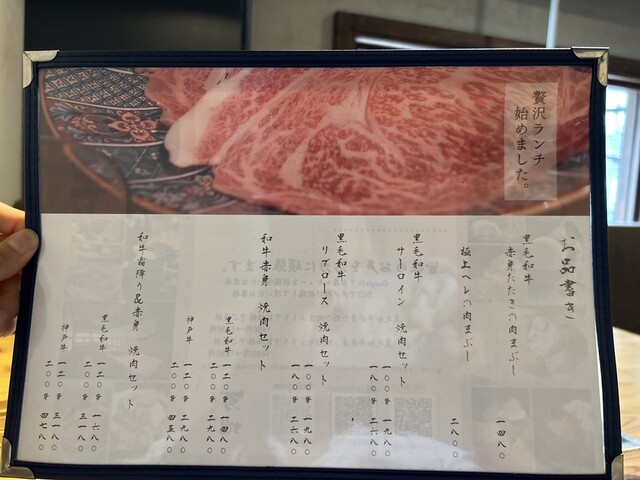 贅沢ランチ
始めました。
お品書き
黒毛和牛
赤身たたきの肉まぶし 一四八〇
極上ヘレの肉まぶし 二八〇〇
黒毛和牛
サーロイン 焼肉セット
一〇〇g 一九八〇
一八〇g 二六八〇
黒毛和牛
リブロース 焼肉セット
一〇〇g 一九八〇
一八〇g 二六八〇
和牛赤身 焼肉セット
黒毛和牛 一二〇g 一四八〇
二〇〇g 二九八〇
神戸牛 一二〇g 二九八〇
二〇〇g 四五八〇
和牛霜降り&赤身 焼肉セット
黒毛和牛 一二〇g 一六八〇
二〇〇g 三一八〇
神戸牛 一二〇g 三一八〇
二〇〇g 四七八〇